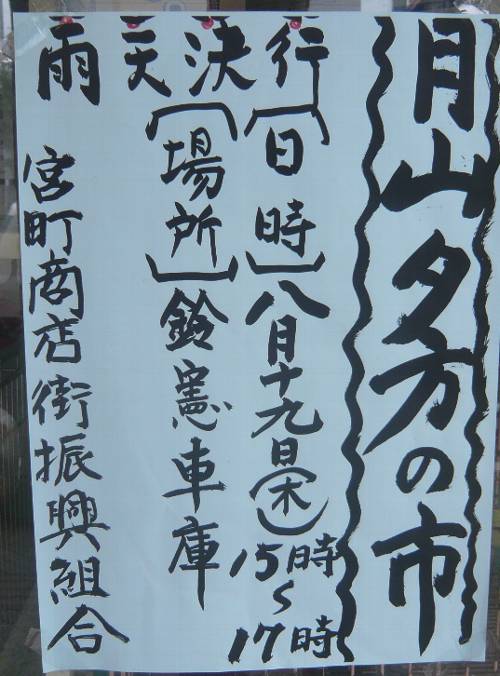 月山夕方の市
雨天決行
〔日時〕八月十九日(木)15時~17時
〔場所〕鈴憲車庫
宮町商店街振興組合